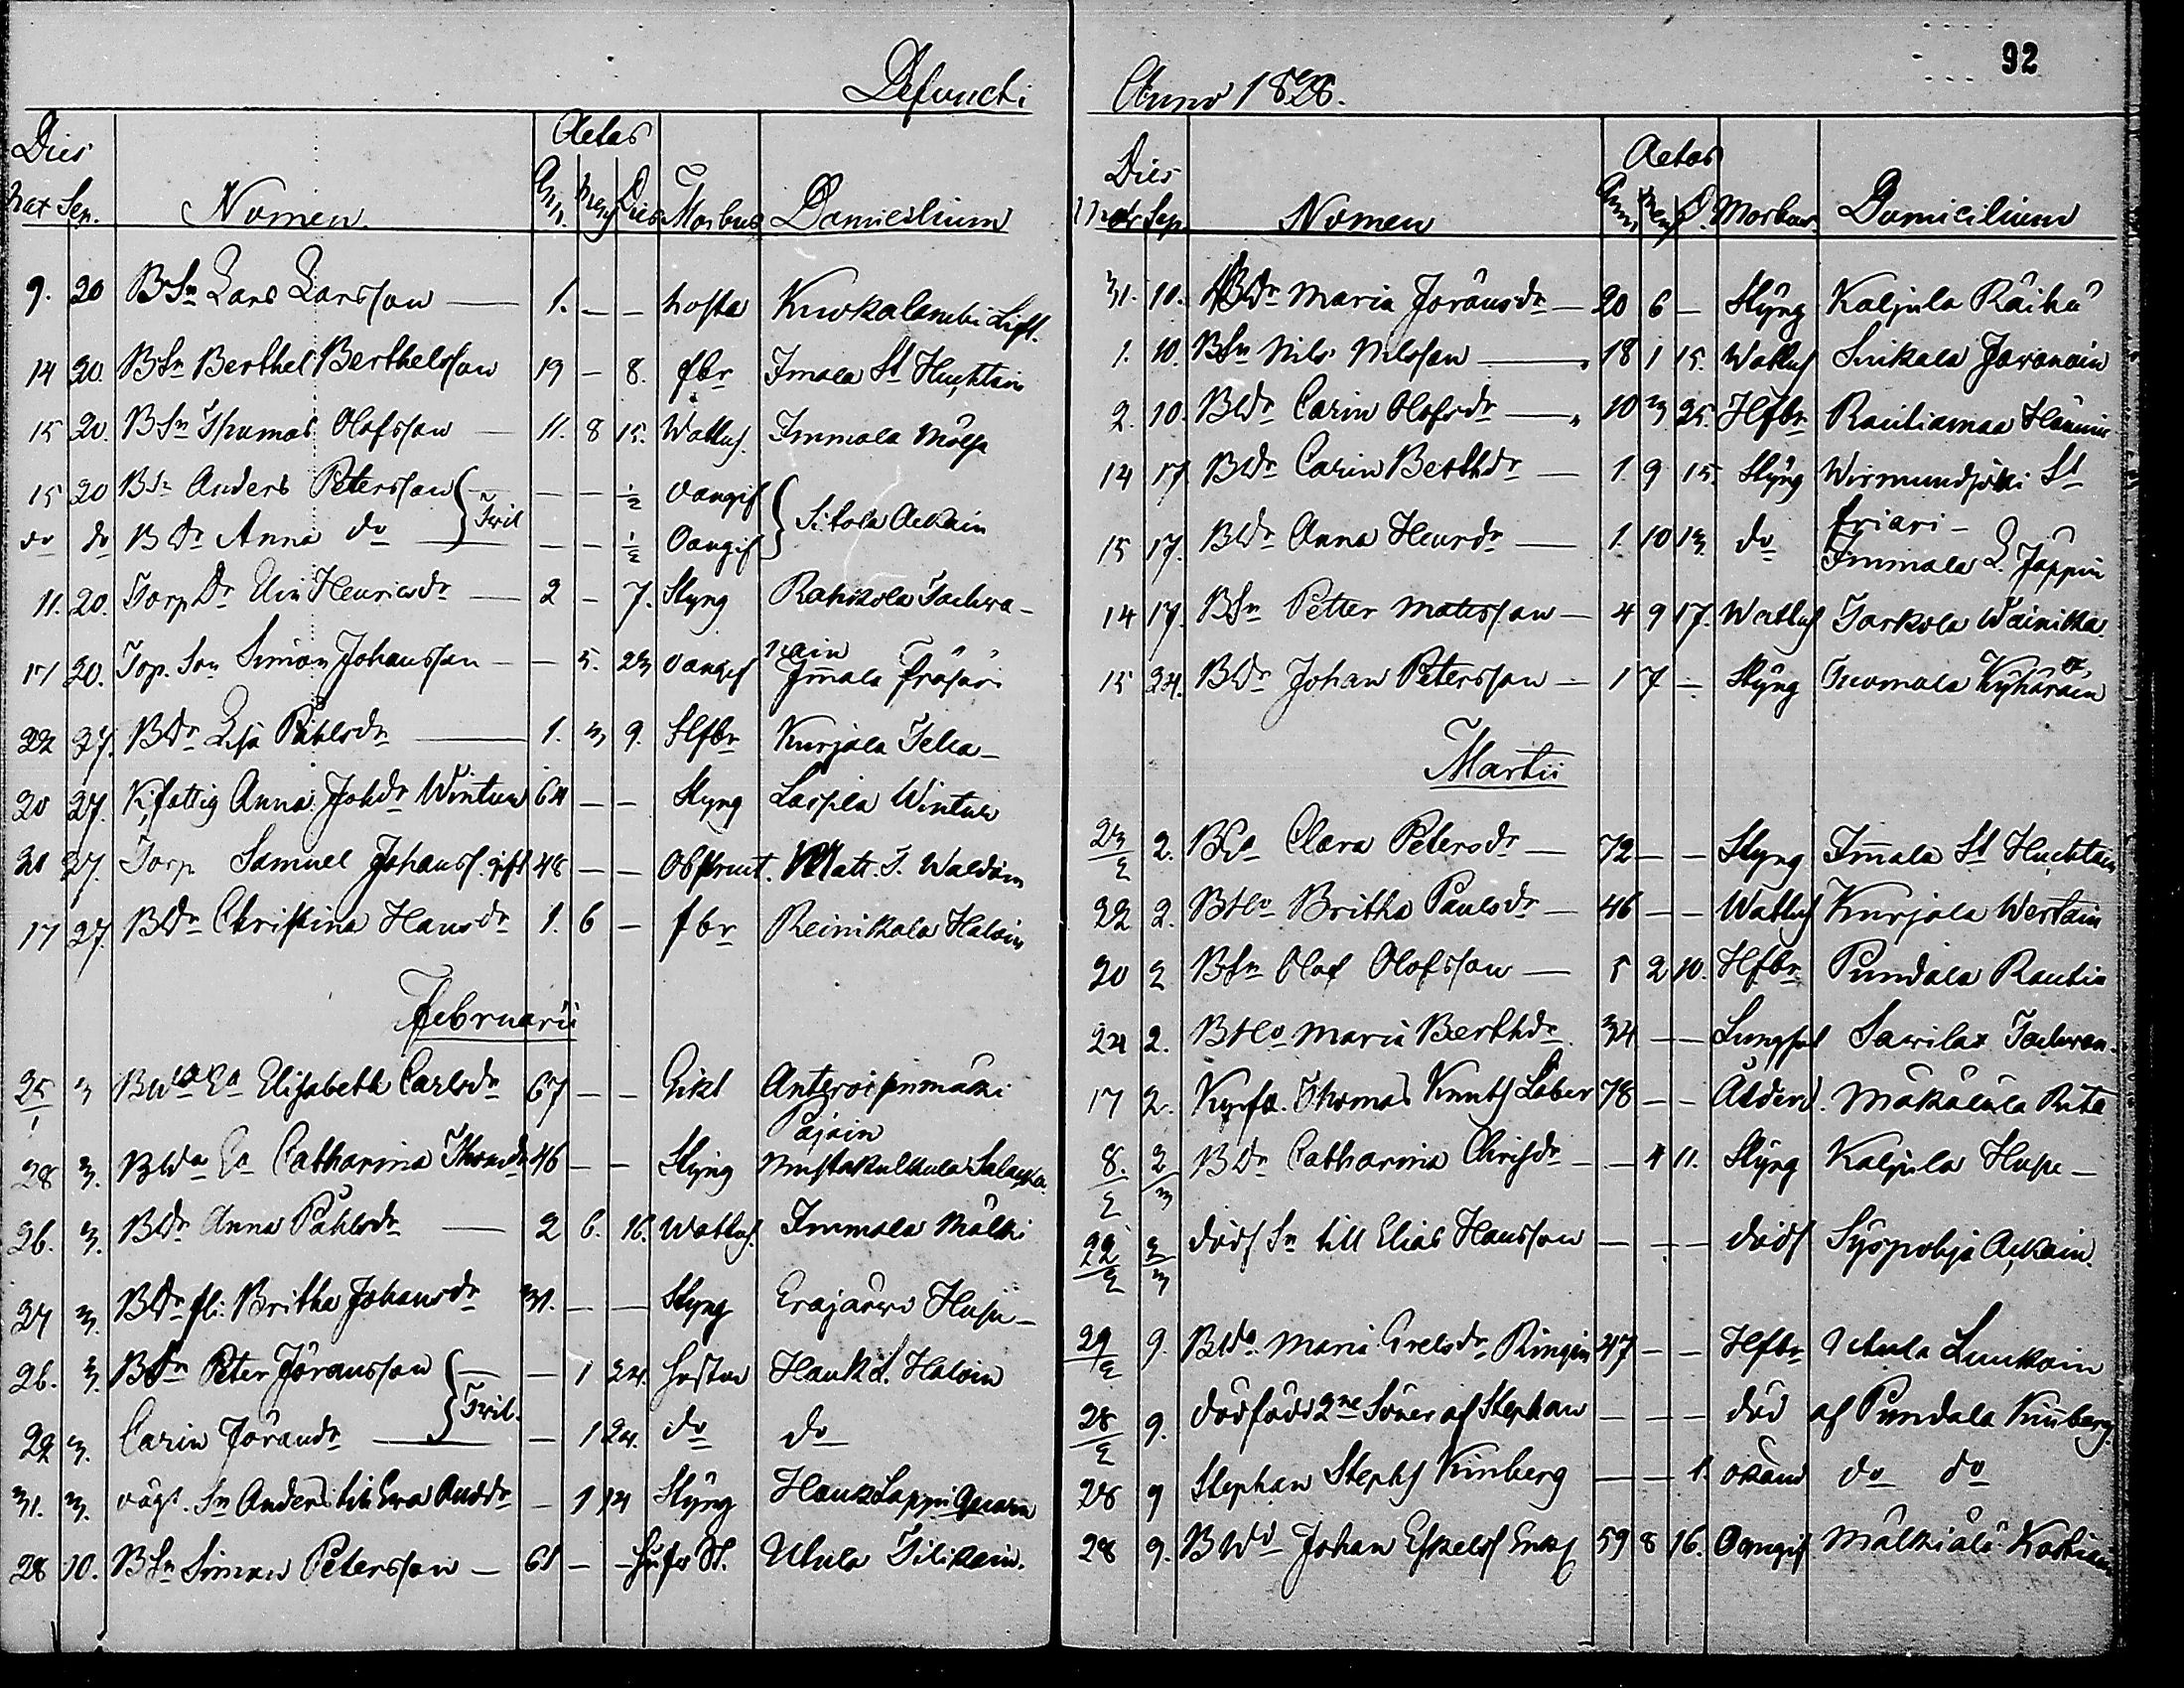 92
Defuncti
Dies Aetas
nat Sep. Nomen Ann. Mens Dies Morbus Domicilium
9. 20 BSn Lars Larsson — 1. — — hosta Kurkalambi Lift.
14 20. BSn Berthel Berthelsson 19 — 8. fbr Imala St Huchtain
15 20. BSn Thomas Olofsson — 11. 8 15. Wattus. Immala Mölsä
15 20 BSn Anders Petersson — — — ½ oangif
Tvil Sitola Ackain
do do BDr Anna do — — — ½ Oangif
11. 20. Torp Dr Elin Henricsdr — 2 — 7. Styng Rahikola Tachva-
nain
17 20. Top. Son Simon Johansson — — 5. 23 oangif Im̄ala
22 27. BDr Lisa Påhlsdr — 1. 3 9. Hfbr Kurjala Telia —
20 27. K,fattig Anna Johdr Wintur 64 — — Styng Laspila Wintur
20 27. Torp Samuel Johanss. gift 48 — — Obstruct. Matt. T. Waldim
17 27. BDr Christina Hansdr 1. 6 — fbr Reinikala Haloin
Februarii
25/1 3 BWa Ea Elisabeth Carlsdr 67 — — Gikt
Pajain
28 3. BWa Ea Catharina Thomdr 46 — — Styng Mustakulkula
26. 3. BDr Anna Påhlsdr — 2 6. 16. Wattus. Immala Mälki
27 3. BDr fl: Britha Johansdr 31. — — Styng Erajärvi Hupu —
26. 3. BSn Peter Jöransson — — 1 24. hostan Hauk L. Haloin
Tvil.
29 3. Carin Jörandr — — 1 24. do do
31. 3. oägt. Sn Anders till Eva Andsdr — 1 14 Styng Hauk Lappi Qvarn
28 10. BSn Simon Petersson — 61 — — Utula Tilikain.
Anno 1828.
Dies Aetas
Mort Sep. Nomen Ann. Mens D. Morbus. Domicilium
31. 10. BDr Maria Jöransdr — 20 6 — Styng Kaljula Räihä
1. 10. BSn Nils Nilsson — 18 1 15. Wattus Suikala Javanain
2. 10. BDr Carin Olofsdr — 10 3 25. Hfbr Rautiamaa Hännin
14 17 BDr Carin Berthdr — 1. 9 15. Styng Wirmundjoki St
friari —
15 17. BDr Anna Henrdr — 1. 10 13 do Immala L. Jäppin
14 17. BSn Petter Matsson — 4 9 17. Wattus Jarkola Wainikka.
15 24. BDr Johan Petersson — 1 7 — Styng Tuomala
Martii
23/2 2. Clara Petersdr — 72 — — Styng Im̄ala St Huchtain
22 2. BHo Britha Paulsdr — 46 — — Wattus Kurjala Wertain
20 2 BSn Olof Olofsson — 5 2 10. Hfbr Pundala Rautia
24 2. BHo Maria Berthdr. 34 — — Lungsot Savilax Tachvan.
17 2. Thomas Knuts Läber 78 — — Ålderd. Mäkälälä Rita
8./2 2/3 BDr Catharina Chrisdr — — 4 11. Styng Kaljula Hupu —
22/2 2/3 dödf Sn till Elias Hansson — — — dödf Syöpohja Ackain.
29/2 9. Maria Grelsdr Ringin 47 — — Hfbr Utula Luukain
28/2 9. dödfödd 2ne Söner af Stephan — — — död af Pundala Kinberg
28 9 Stephan Stephs Kinberg — — 1. okänd do do
28 9. BWd Johan Eskels Enkl 59 8 16. Oangif Mälkiälä Kostiain